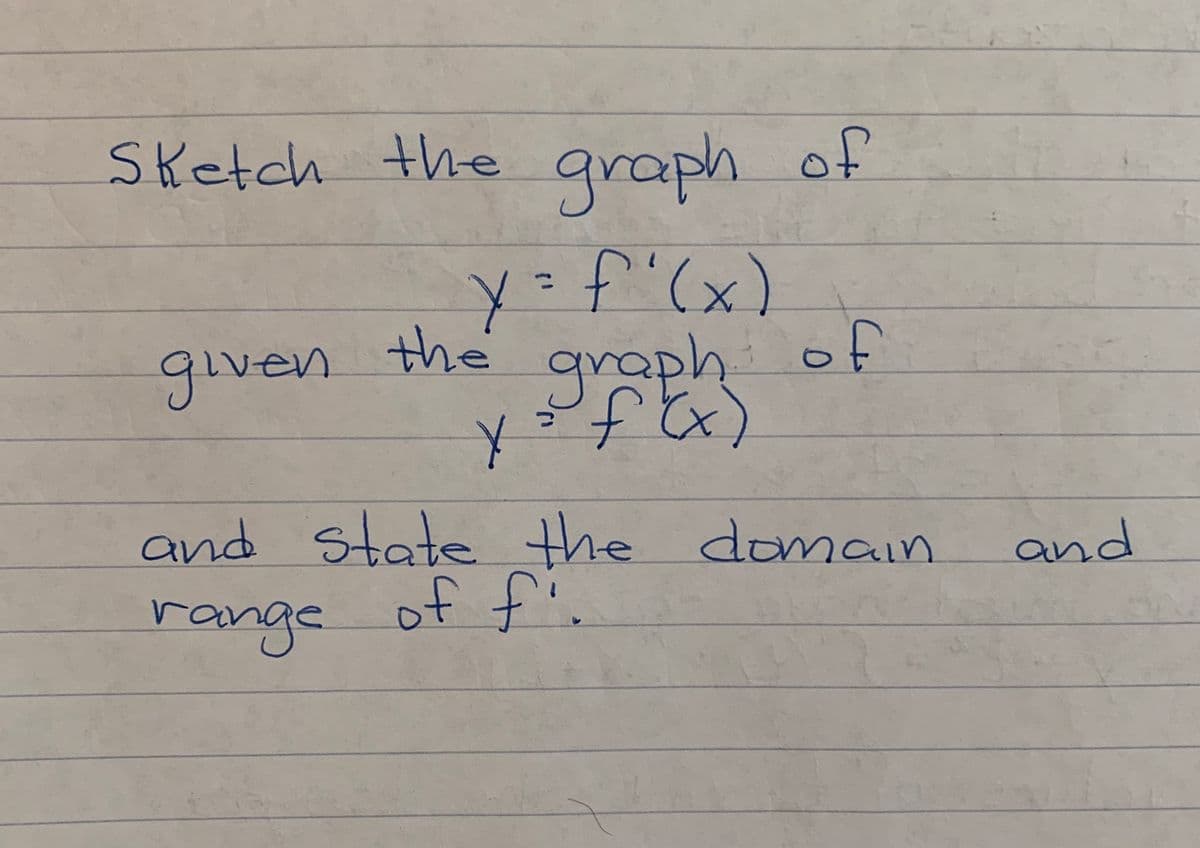 Sketch the graph of
y = f'(x)
given the graph of
y = f(x)
and state the domain and
range of f'.